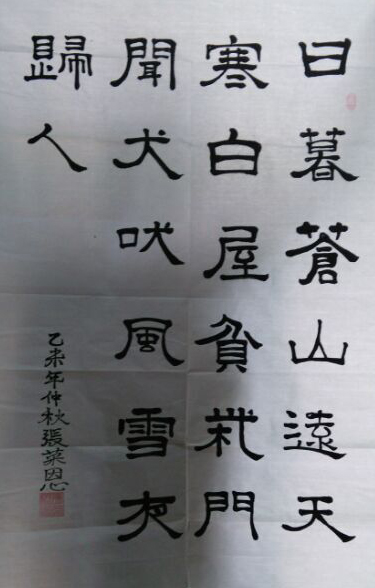 日暮蒼山遠天
寒白屋貧柴門
聞犬吠風雪夜
歸人
乙未年仲秋張菜恩